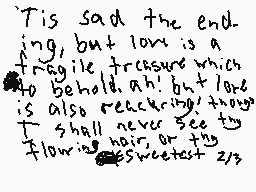 Tis sad the end-
ing, but love is a
fragile treasure which
to behold. ah! but love
is also reacuring, though
I shall never see thy
flowing hair, or thy
sweetest 2/3